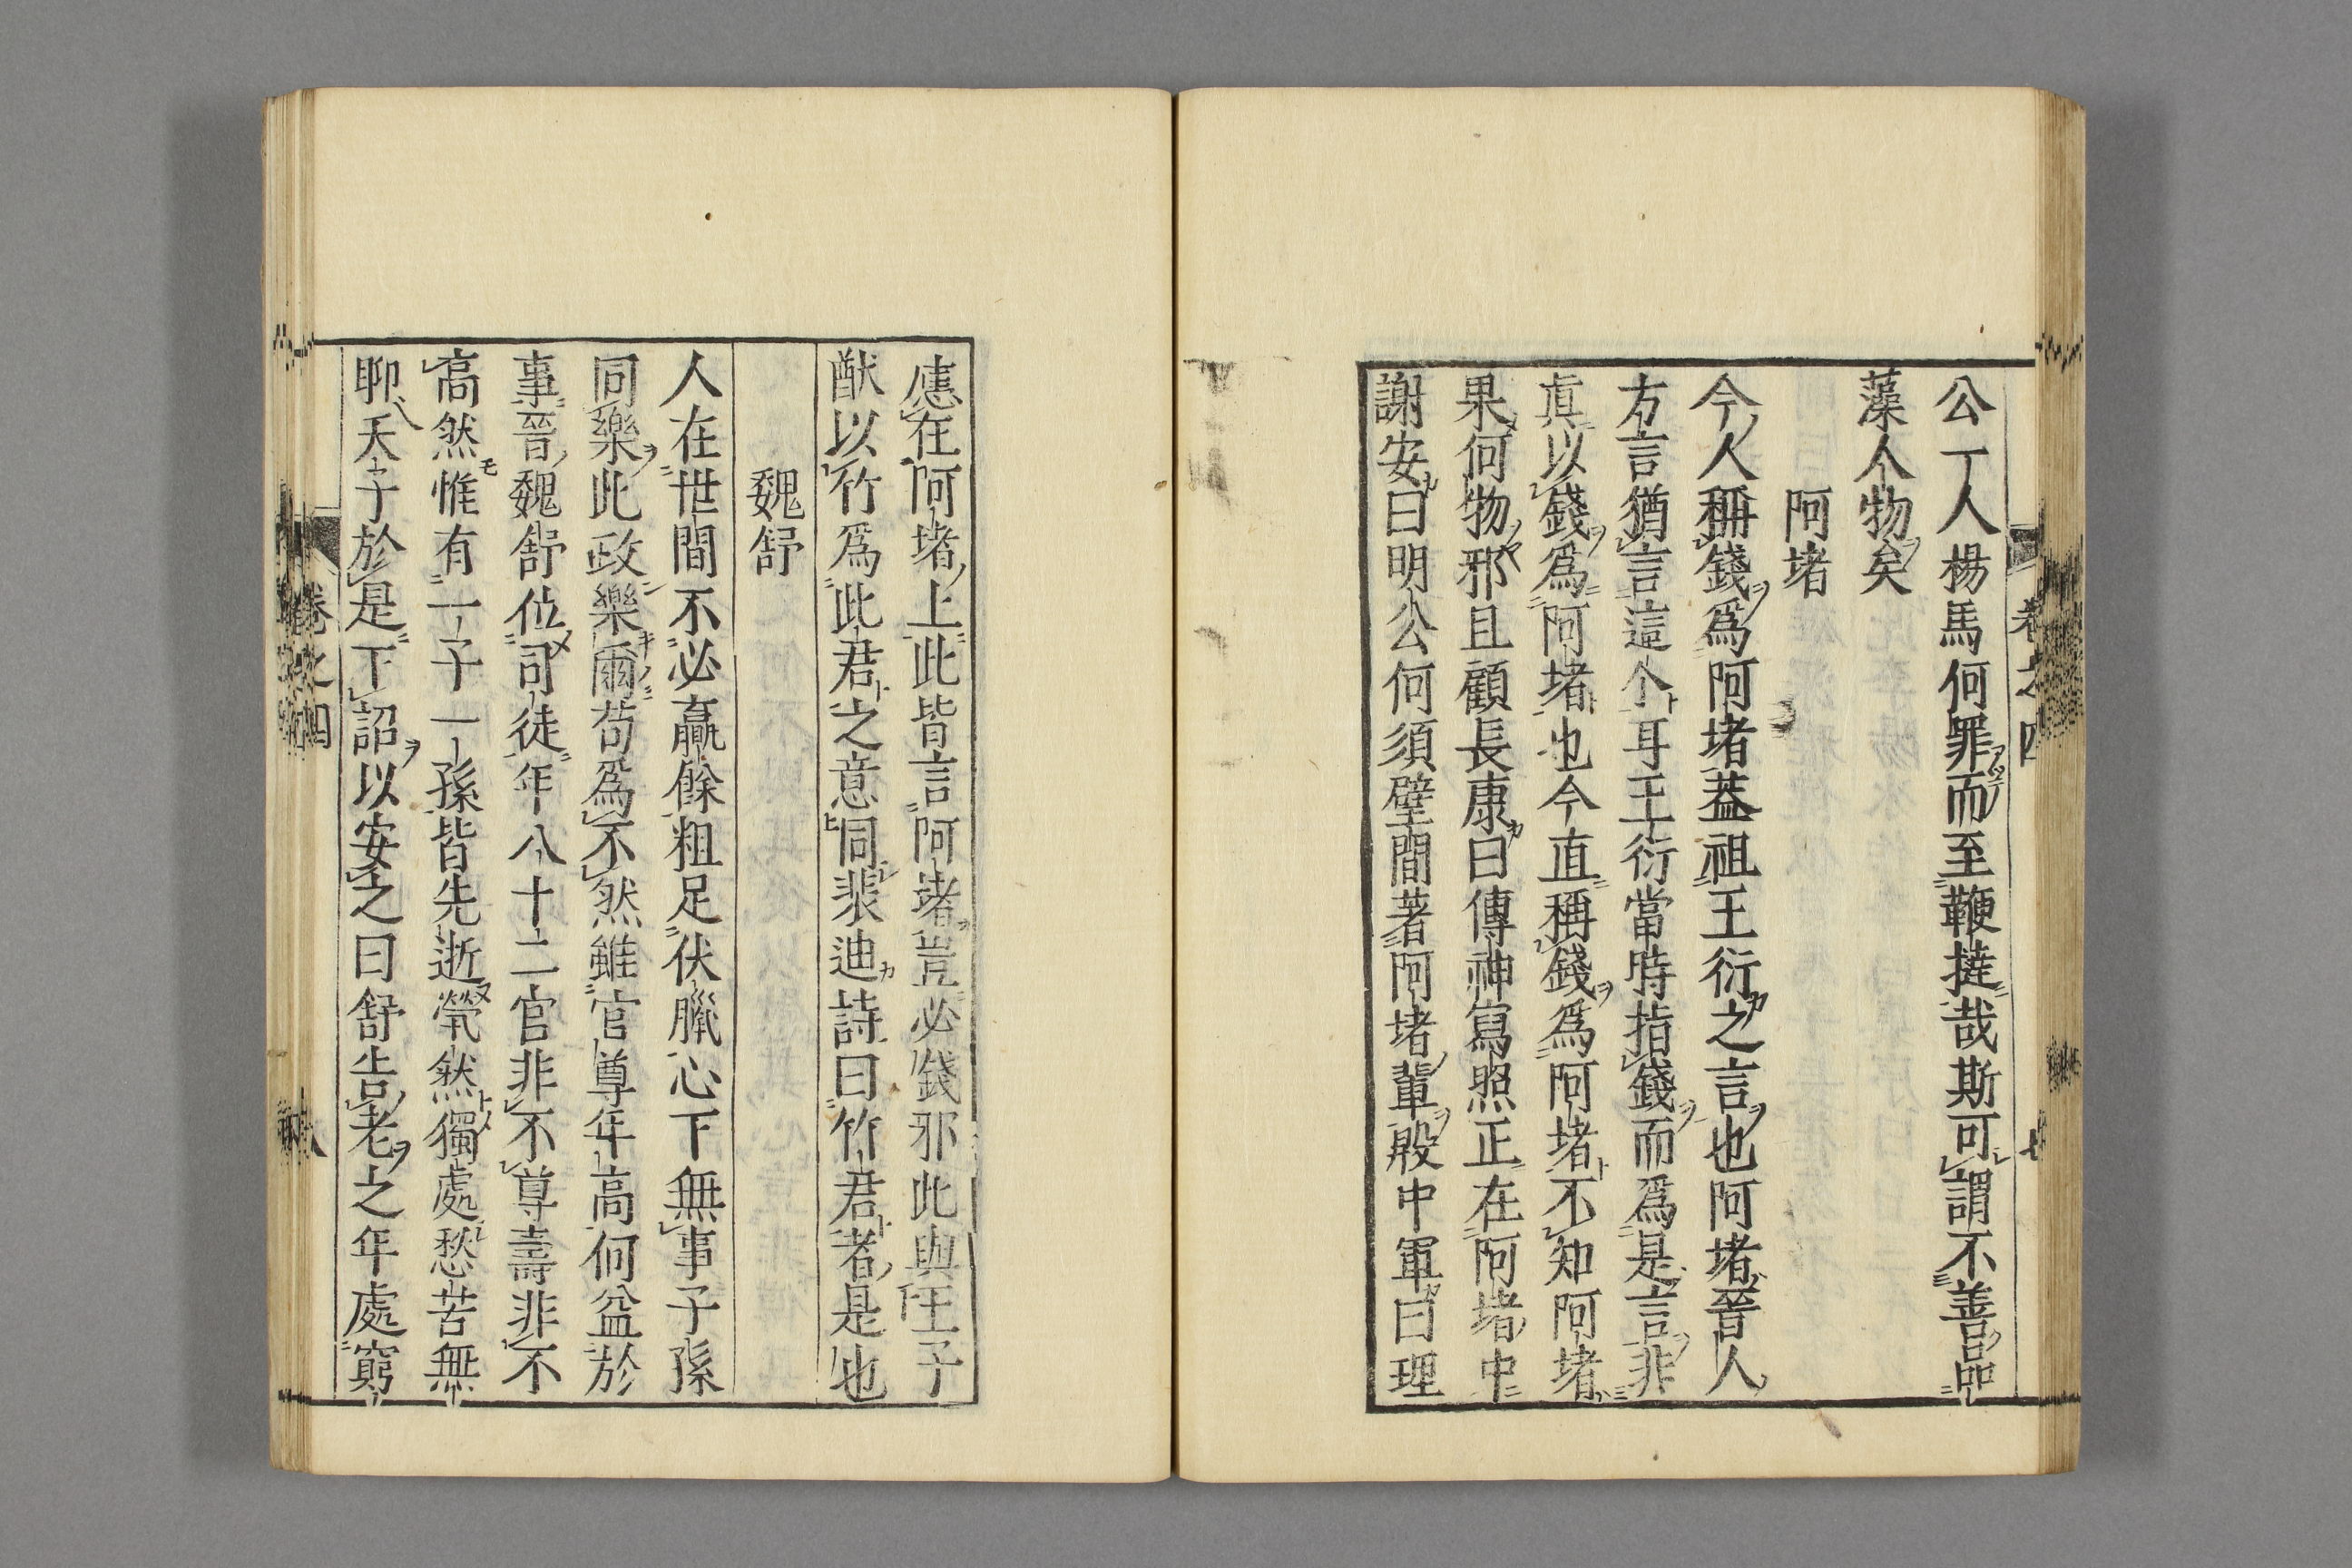 公一人楊馬何罪而至鞭撻哉斯可謂不善品
藻人物矣
阿堵
今人稱錢爲阿堵蓋祖王衍之言也阿堵晉人
方言猶言這个耳王衍當時指錢而爲是言非
眞以錢爲阿堵也今直稱錢爲阿堵不知阿堵
果何物邪且顧長康曰傳神寫照正在阿堵中
謝安曰明公何須壁間著阿堵輩殷中軍曰理
應在阿堵上此皆言阿堵豈必錢邪此與王子
猷以竹爲此君之意同裴迪詩曰竹君者是也
魏舒
人在世間不必贏餘粗足伏臘心下無事子孫
同樂此政樂爾苟爲不然雖官尊年高何益於
事晉魏舒位司徒年八十二官非不尊壽非不
高然惟有一子一孫皆先逝煢然獨處愁苦無
聊天子於是下詔以安之曰舒告老之年處窮
卷之四
八